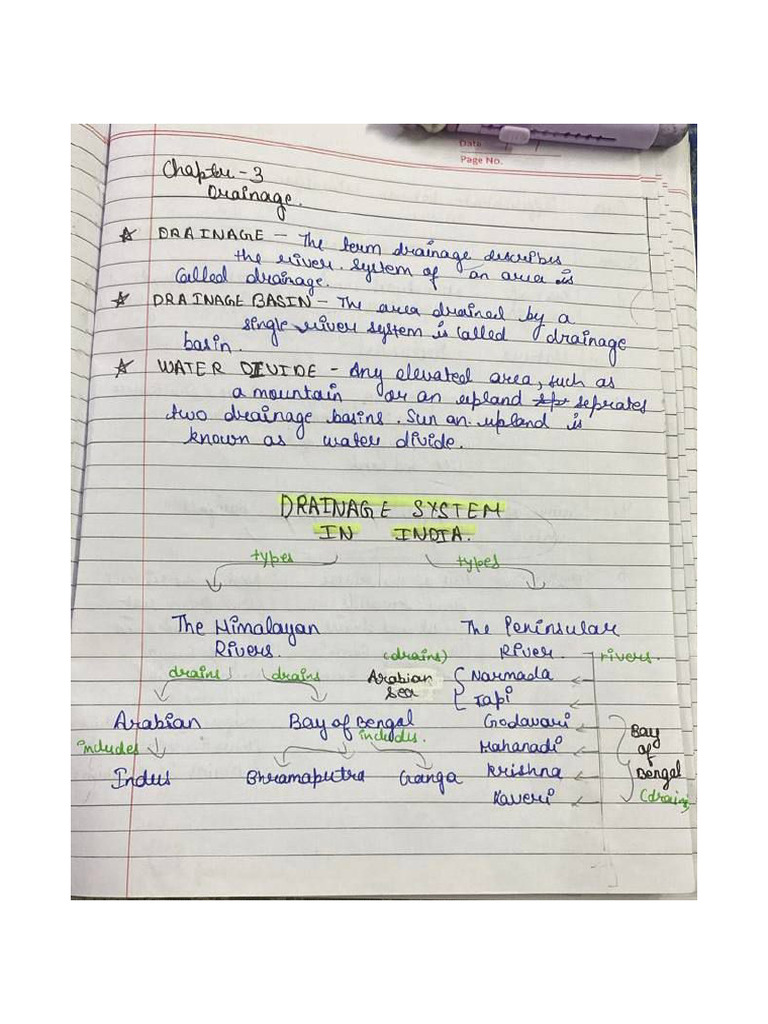 Data
Page No.
Chapter-3
Drainage.
☆ DRAINAGE - The term drainage describes
the river system of an area is
called drainage.
☆ DRAINAGE BASIN - The area drained by a
single river system is called drainage
basin.
☆ WATER DIVIDE - Any elevated area, such as
a mountain or an upland seprates
two drainage basins. Sun an upland is
known as water divide.
DRAINAGE SYSTEM
IN INDIA.
types types
The Himalayan
Rivers.
The Peninsular
River
rivers.
drains drains
(drains)
Arabian
sea
Narmada
Tapi
Arabian Bay of Bengal
includes includes.
Indus Bhramaputra Ganga
Godavari
Mahanadi
Krishna
Kaveri
Bay
of
Bengal
(drains)